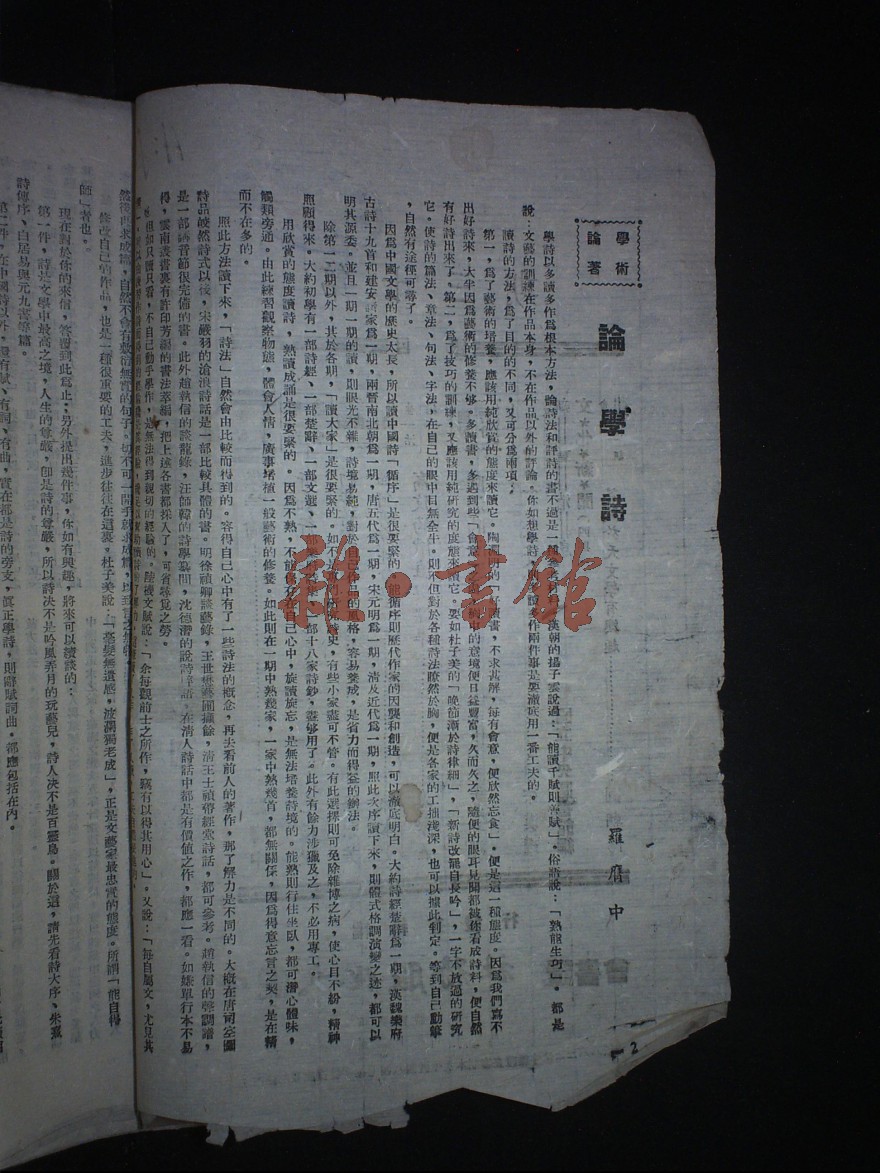 學術
論著
論學詩
羅膺中
學詩以多讀多作爲根本方法，論詩法和評詩的書不過是一種 漢朝的揚子雲說過：「能讀千賦則 賦」。俗語說：「熟能生巧」。都是
說：文藝的訓練在作品本身，不在作品以外的評論。你如想學詩， 作兩件事是要澈底用一番工夫的。
讀詩的方法，爲了目的的不同，又可分爲兩項。
第一，爲了藝術的培養，應該用純欣賞的態度來讀它。陶淵明的「好讀書，不求甚解，每有會意，便欣然忘食」。便是這一種態度。因爲我們寫不
出好詩來，大半因爲藝術的修養不够。多讀書，多遇到些「會意」 中的意境便日益豐富，久而久之，隨便的眼耳見聞都被你看成詩料，便自然
有好詩出來了。第二，爲了技巧的訓練，又應該用純研究的度態來讀它。要如杜子美的「晚節漸於詩律細」，「新詩改罷自長吟」，一字不放過的研究
它。使詩的篇法、章法、句法、字法，在自己的眼中目無全牛。則不但對於各種詩法瞭然於胸，便是各家的工拙淺深，也可以據此判定。等到自己動筆
，自然有途徑可尋了。
因爲中國文學的歷史太長，所以讀中國詩「循序」是很要緊的。能循序則歷代作家的因襲和創造，可以澈底明白。大約詩經楚辭爲一期，漢魏樂府
古詩十九首和建安諸家爲一期，兩晉南北朝爲一期，唐五代爲一期，宋元明爲一期，清及近代爲一期，照此次序讀下來，則體式格調演變之迹，都可以
明其源委。並且一期一期的讀，則眼光不雜，詩境易純，對於自己作品的風格，容易養成，是省力而得益的辦法。
除第一二期以外，其於各期，「讀大家」是很要緊的。如不是 史，有些小家盡可不管。有此選擇則可免除雜博之病，使心目不紛，精神
照顧得來。大約初學有一部詩經、一部楚辭、一部文選、一部 一部十八家詩鈔，儘够用了。此外有餘力涉獵及之，不必用專工。
用欣賞的態度讀詩，熟讀成誦是很要緊的。因爲不熟，不能 在自己心中，旋讀旋忘，是無法培養詩境的。能熟則行住坐臥，都可潛心體味，
觸類旁通。由此練習觀察物態，體會人情，廣事增植一般藝術的修養。如此則在一期中熟幾家，一家中熟幾首，都無關係，因爲得意忘言之契，是在精
而不在多的。
照此方法讀下來，「詩法」自然會由比較而得到的。容得自己心中有了一些詩法的概念，再去看前人的著作，那了解力是不同的。大概在唐司空圖
詩品皎然詩式以後，宋嚴羽的滄浪詩話是一部比較具體的書。明徐禎卿談藝錄，王世懋藝圃擷餘，清王士禎帶經堂詩話，都可參考。趙執信的聲調譜，
是一部講音節很完備的書。此外趙執信的談龍錄，汪師韓的詩學纂聞，沈德潛的說詩晬語，在清人詩話中都是有價値之作，都應一看。如嫌單行本不易
得，雲南叢書裏有許印芳輯的書法萃編，把上述各書都採入了，可省尋覓之勞。
但如只讀只看，不自己動手學作，是無法得到親切的經驗的。陸機文賦說：「余每觀前士之所作，竊有以得其用心」。又說：「每自屬文，尤見其
然後再求成篇，自然不會有敷衍無實的句子。切不可一開手就求成篇，
修改自己的作品，也是一種很重要的工夫，進步往往在這裏。杜子美說：「毫髮無遺感，波瀾獨老成」，正是文藝家最忠實的態度。所謂「能自得
師」者也。
現在對於你的來信，答覆到此爲止；另外提出幾件事，你如有興趣，將來可以續談的：
第一件，詩是文學中最高之境，人生的尊嚴，卽是詩的尊嚴，所以詩决不是吟風弄月的玩藝兒，詩人决不是百靈鳥。關於這，請先看詩大序、朱熹
詩傳序、白居易與元九書等篇。
第二件，在中國詩以外，還有賦、有詞、有曲，實在都是詩的旁支，眞正學詩，則辭賦詞曲，都應包括在內。
雜·書館
2